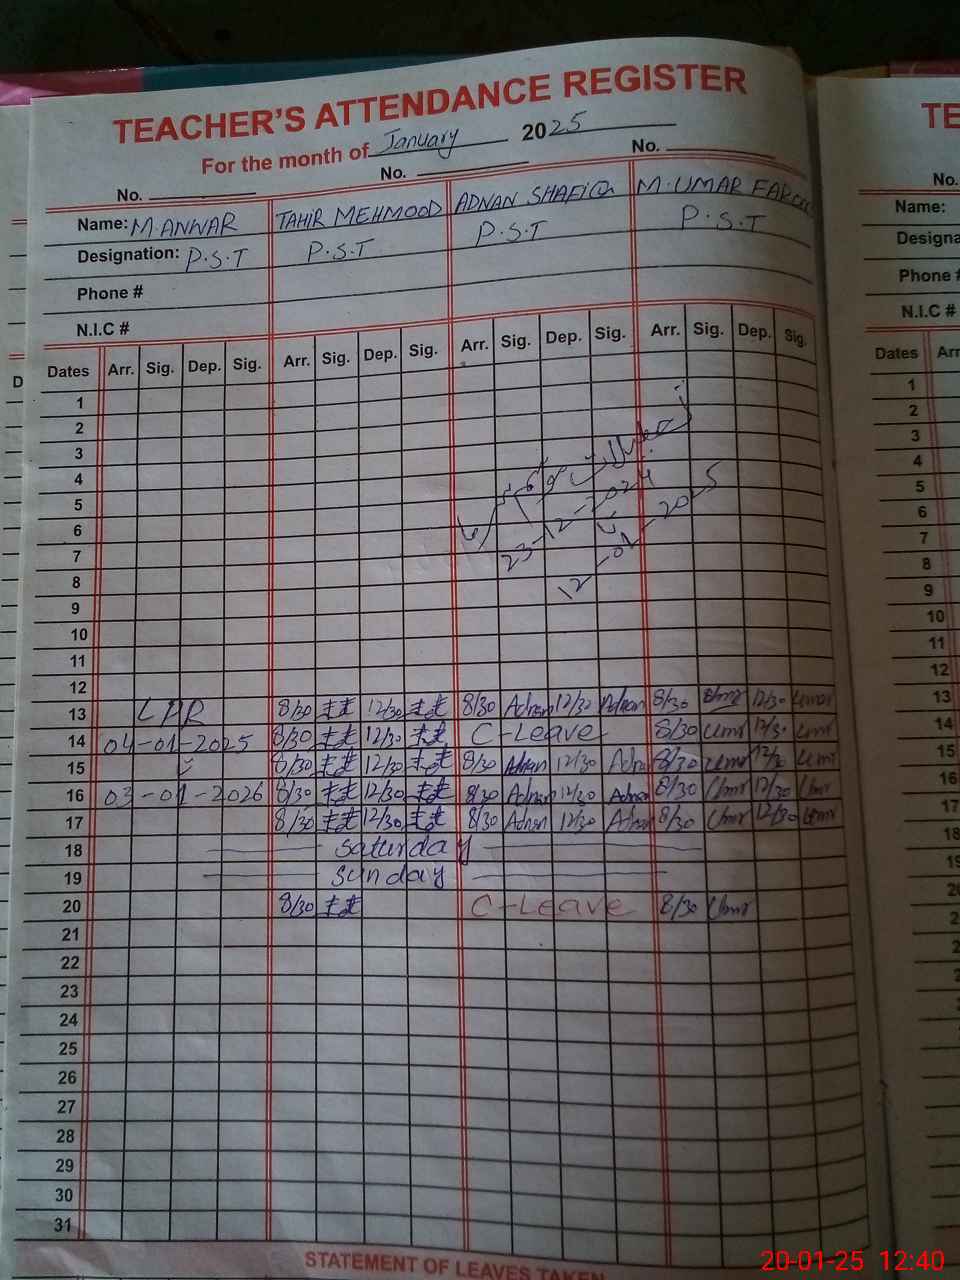 TEACHER'S ATTENDANCE REGISTER
For the month of January 2025
No. No. No.
Name: M. ANWAR TAHIR MEHMOOD ADNAN SHAFIQ M. UMAR FAROO
Designation: P.S.T P.S.T P.S.T P.S.T
Phone #
N.I.C #
Dates Arr. Sig. Dep. Sig. Arr. Sig. Dep. Sig. Arr. Sig. Dep. Sig. Arr. Sig. Dep. Sig.
1
2
3
4
5
23-12-2024
6
7
12-01-2025
8
9
10
11
12
13 LPR 8/30 12/30 8/30 Adnan 12/30 Adnan 8/30 Umr 12/30 Umr
14 04-01-2025 8/30 12/30 C-Leave 8/30 Umr 12/30 Umr
15 8/30 12/30 8/30 Adnan 12/30 Adna 8/30 Umr 12/30 Umr
16 03-01-2026 8/30 12/30 8/30 Adnan 12/30 Adnan 8/30 Umr 12/30 Umr
17 8/30 12/30 8/30 Adnan 12/30 Adnan 8/30 Umr 12/30 Umr
18 Saturday
19 Sunday
20 8/30 C-Leave 8/30 Umr
21
22
23
24
25
26
27
28
29
30
31
STATEMENT OF LEAVES TAKEN
TE
No.
Name:
Designa
Phone #
N.I.C #
Dates Arr
1
2
3
4
5
6
7
8
9
10
11
12
13
14
15
16
17
18
19
20-01-25 12:40